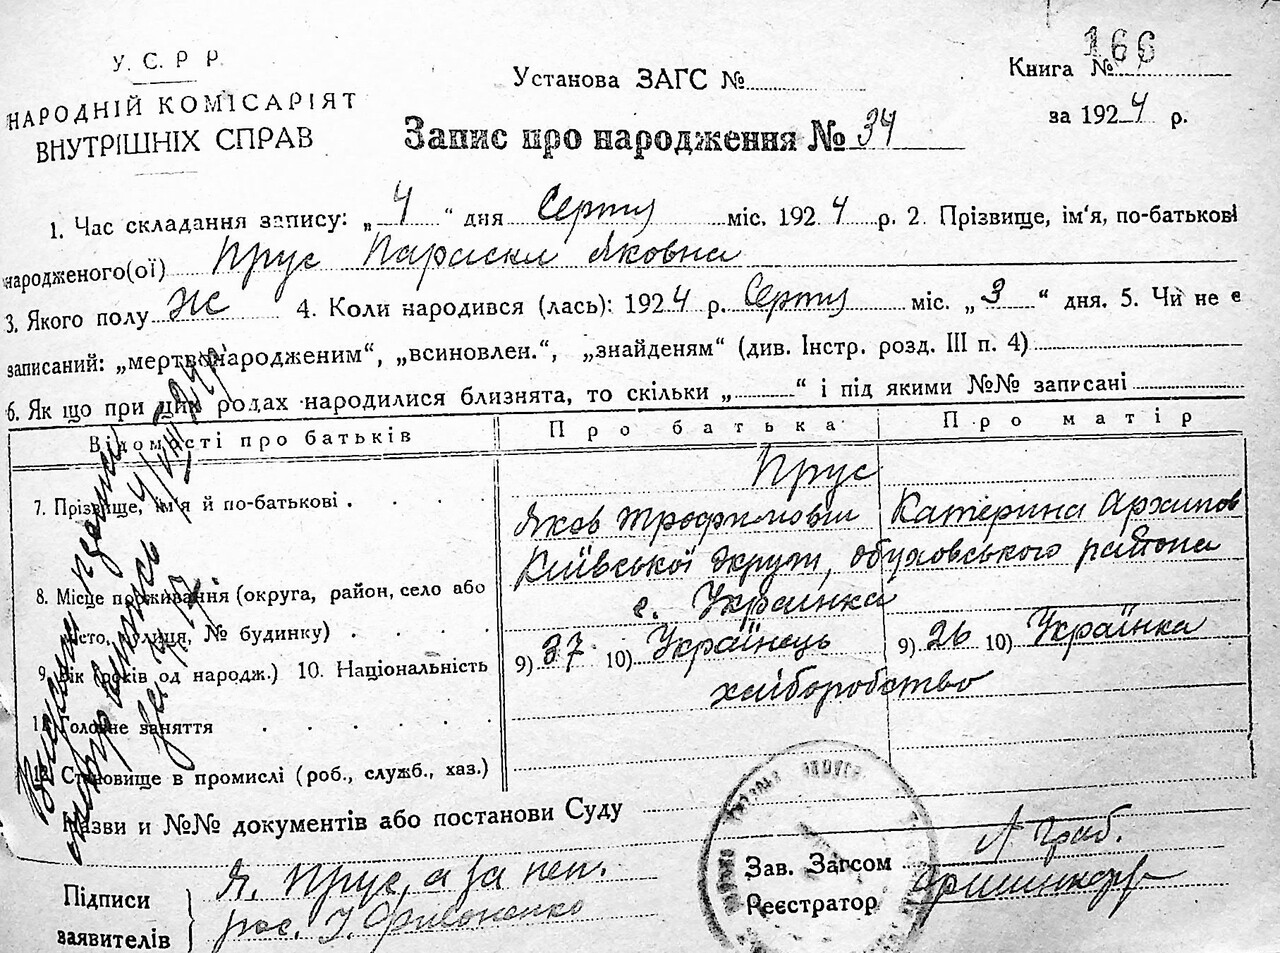 У. С. Р Р.
НАРОДНІЙ КОМІСАРІЯТ
ВНУТРІШНІХ СПРАВ
Установа ЗАГС №
Книга № 166
за 1924 р.
Запис про народження № 34
1. Час складання запису: „4“ дня Серпня міс. 1924 р. 2. Прізвище, ім'я, по-батькові
народженого(ої) Прус Параска Яковна
3. Якого полу жс 4. Коли народився (лась): 1924 р. Серпня міс. „3“ дня. 5. Чи не є
записаний: „мертвонародженим“, „всиновлен.“, „знайденям“ (див. Інстр. розд. III п. 4)
6. Як що при цих родах народилися близнята, то скільки „ “ і під якими №№ записані
Відомості про батьків
Про батька
Про матір
7. Прізвище, ім'я й по-батькові
Прус
Яков Трофимович
Катерина Архипов
8. Місце проживання (округа, район, село або
місто, вулиця, № будинку)
Київської округи, Обуховського района
с. Українка
9. Вік (років од народж.) 10. Національність
9) 37 10) Українець
9) 26 10) Українка
11. Головне заняття
хліборобство
12. Становище в промислі (роб., служб., хаз.)
Назви и №№ документів або постанови Суду
Підписи
заявителів
Я. Прус, а за неп.
рос. І.
Зав. Загсом
Реєстратор